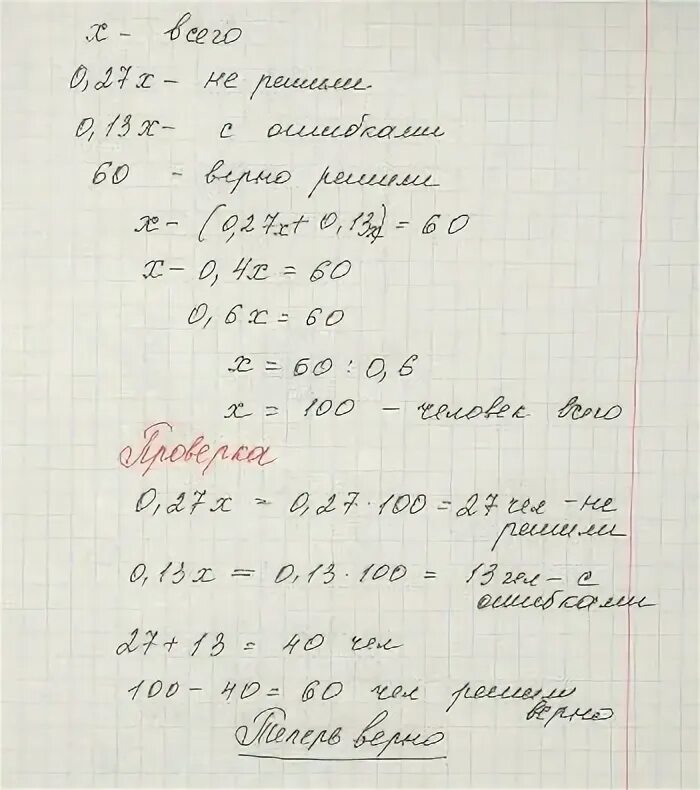 x - всего
0,27x - не решили
0,13x - с ошибками
60 - верно решили
x - (0,27x + 0,13x) = 60
x - 0,4x = 60
0,6x = 60
x = 60 : 0,6
x = 100 - человек всего
Проверка
0,27x = 0,27 · 100 = 27 чел - не
решили
0,13x = 0,13 · 100 = 13 чел - с
ошибками
27 + 13 = 40 чел
100 - 40 = 60 чел решили
верно
Теперь верно